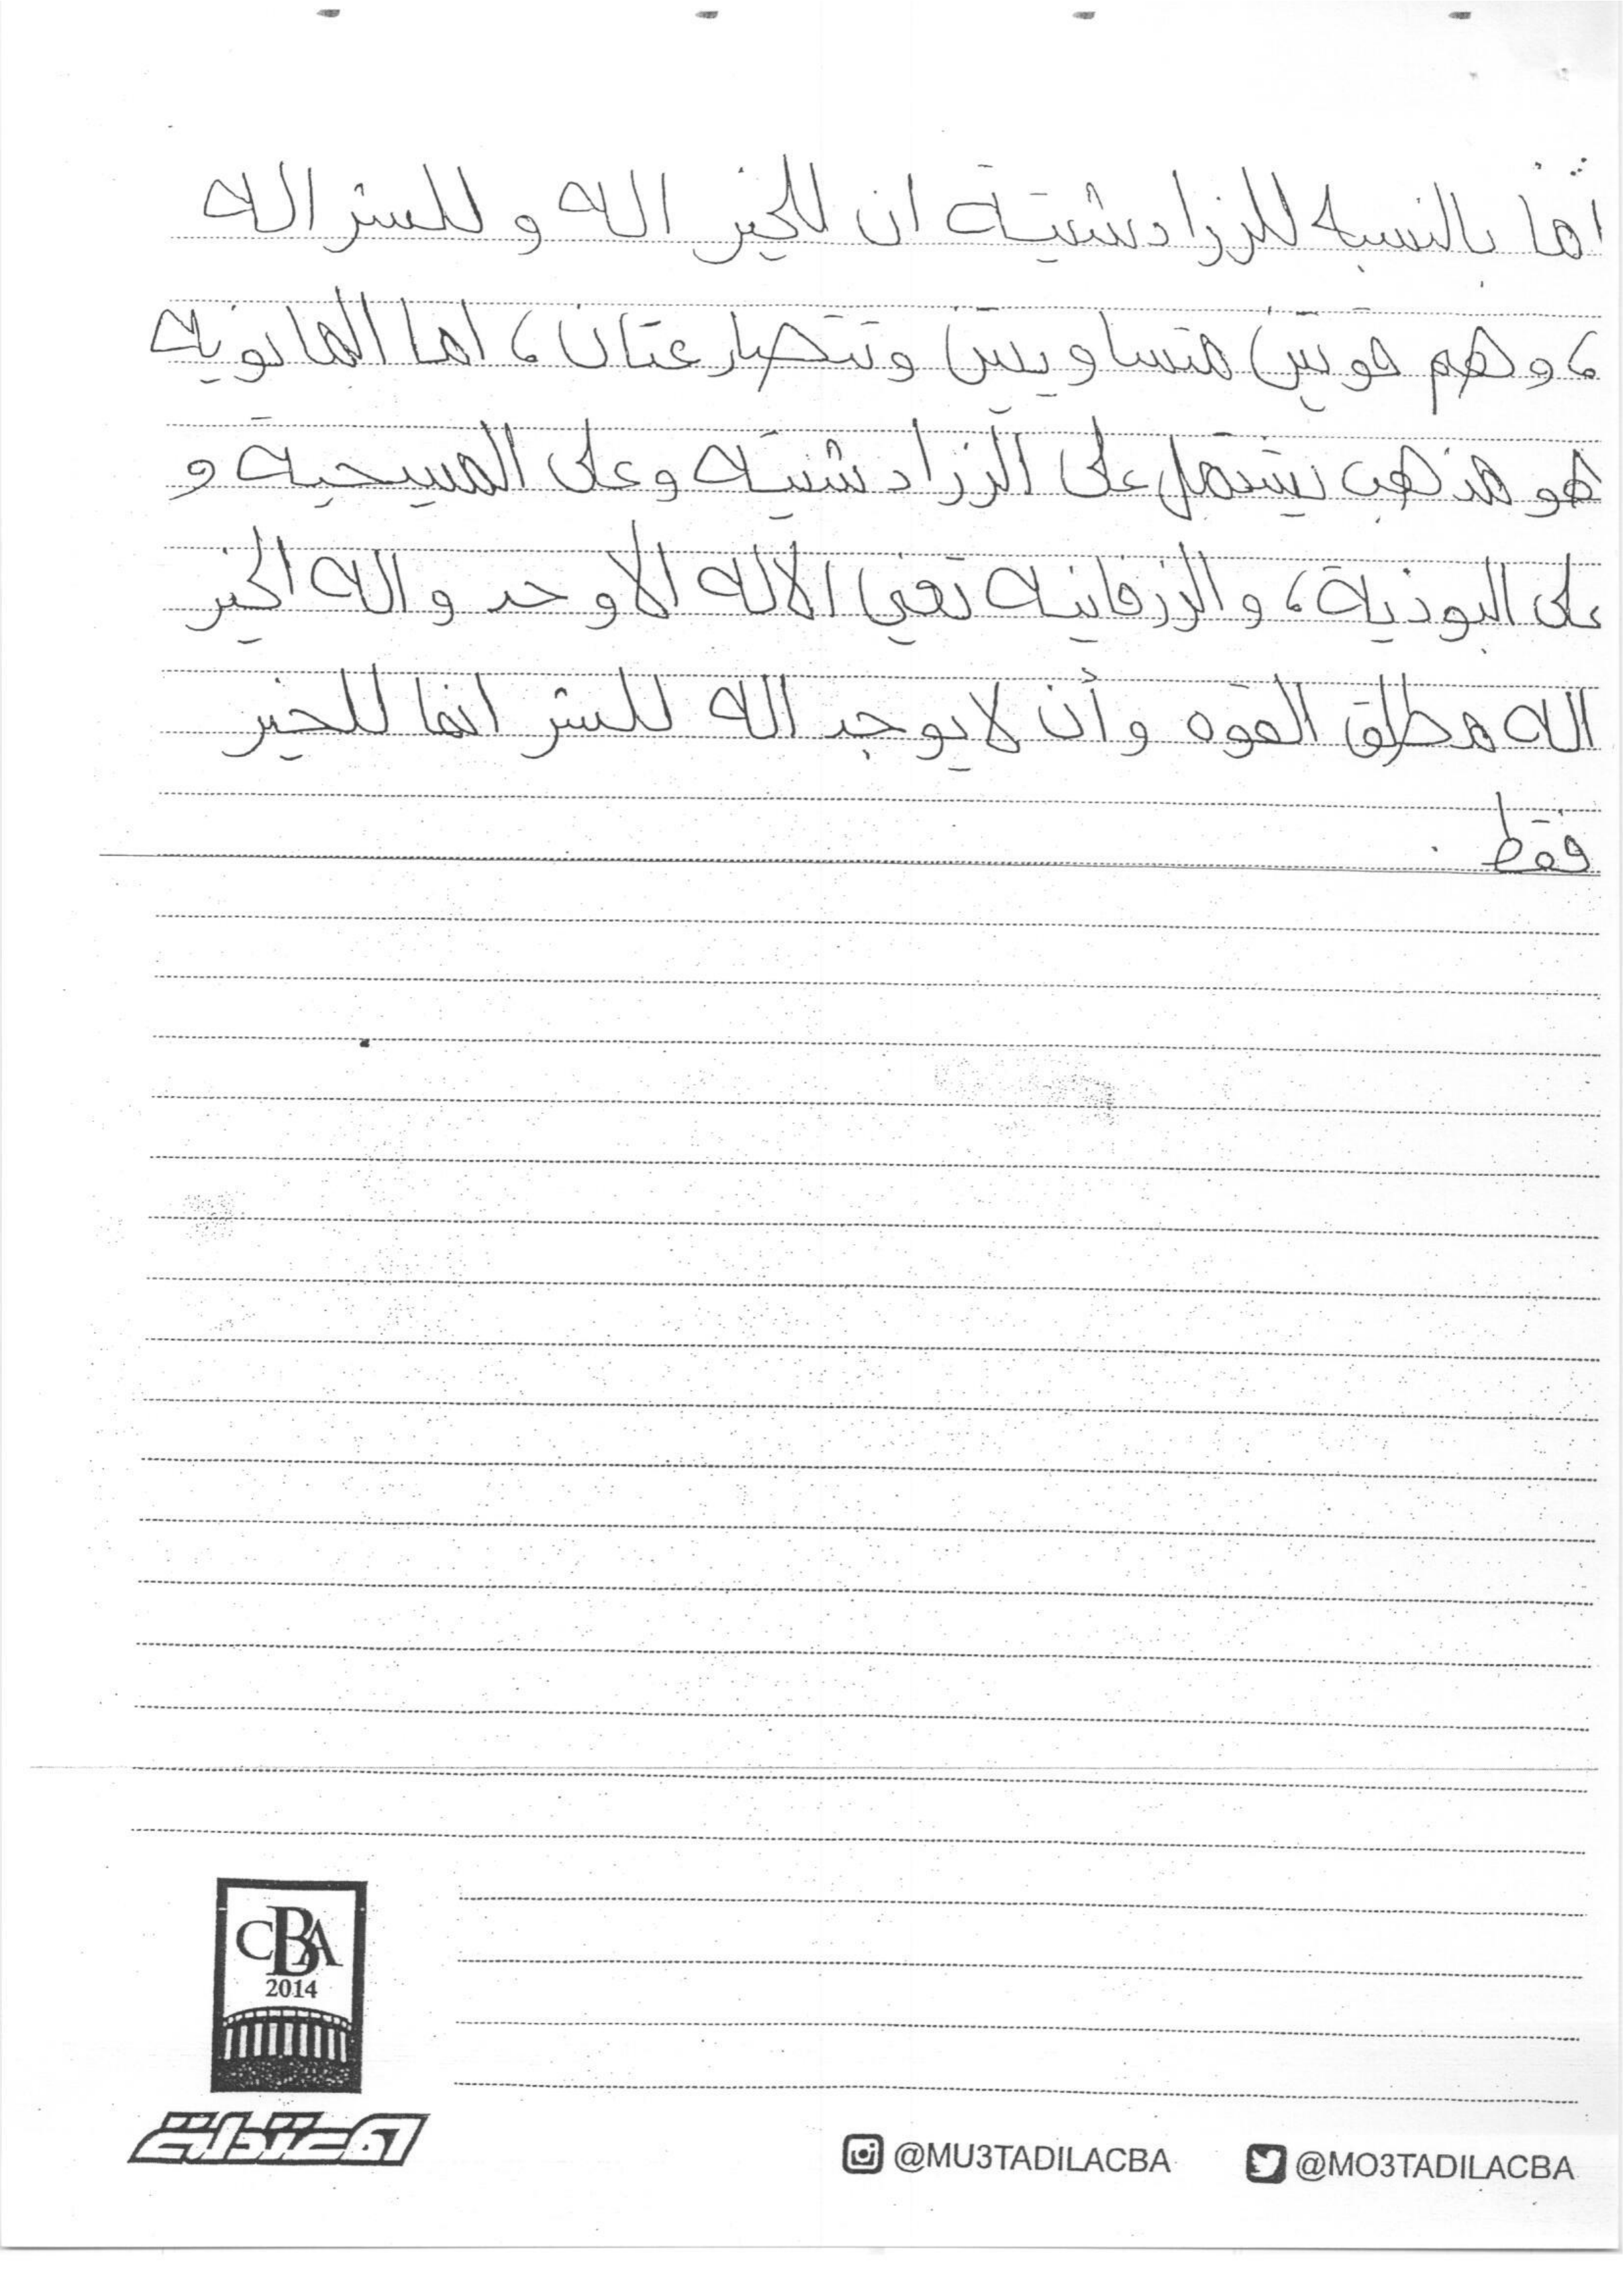 اما بالنسبه للزرادشتية ان للخير اله و للشر اله
، وهم قوتين متساويتين وتتصارعتان ، اما المانويه
هو مذهب يشتمل على الزرادشتيه وعلى المسيحية و
على البوذية ، والزرفانيه تعني الاله الاوحد واله الخير
اله مطلق القوه وأن لا يوجد اله للشر انما للخير
فقط .
CBA
2014
المعتدلة
@MU3TADILACBA @MO3TADILACBA